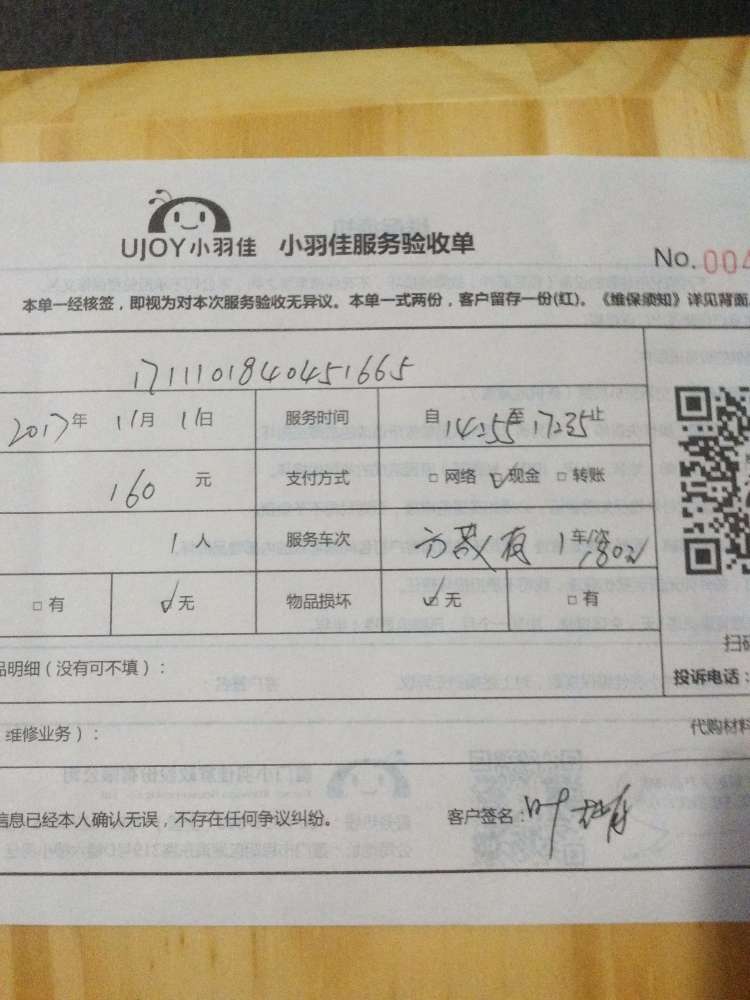 UJOY小羽佳 小羽佳服务验收单
No. 004
本单一经核签，即视为对本次服务验收无异议。本单一式两份，客户留存一份(红)。《维保须知》详见背面
17111018404451665
2017年 11月 1日 服务时间 自14:55至17:35止
160 元 支付方式 □网络 ☑现金 □转账
1人 服务车次 1车/次
□有 ☑无 物品损坏 ☑无 □有
品明细（没有可不填）：
扫码
投诉电话：
维修业务）： 代购材料
信息已经本人确认无误，不存在任何争议纠纷。 客户签名：叶